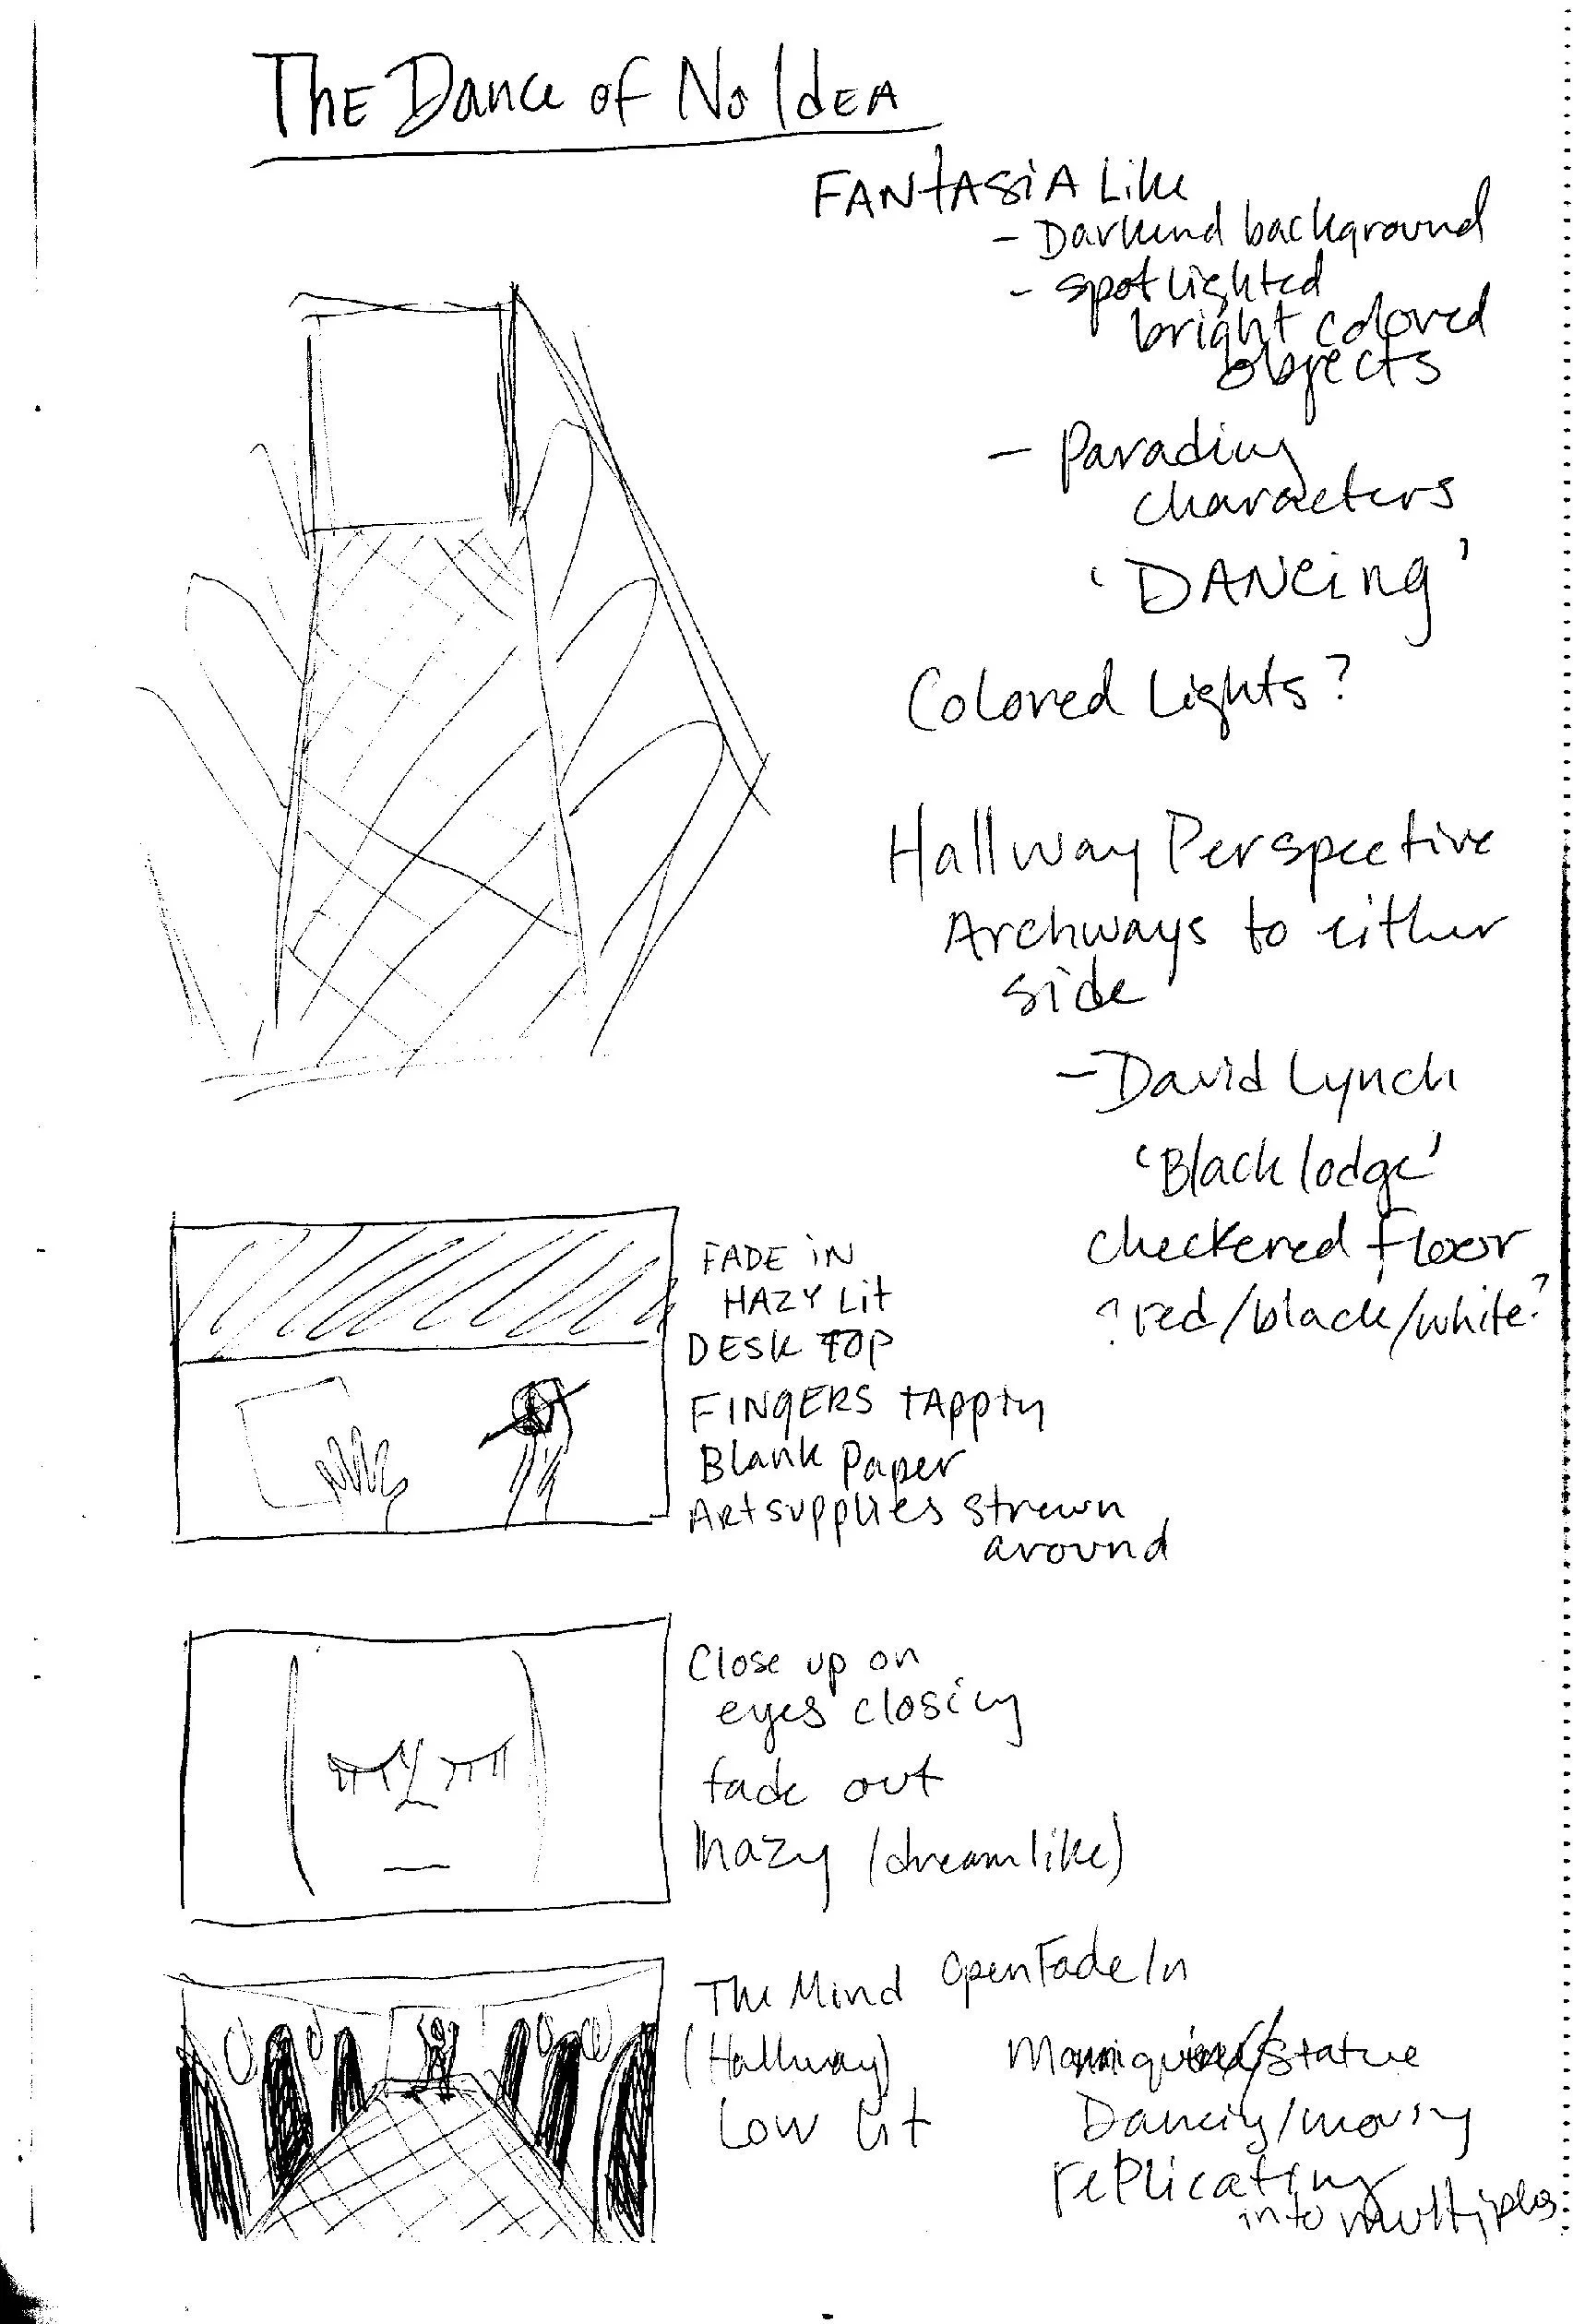 THE DANCE OF NO IDEA
FANTASIA Like
- Darkend background
- spotlighted
bright colored
objects
- Parading
characters
'DANCING'
Colored Lights?
Hallway Perspective
Archways to either
side
- David Lynch
'Black lodge'
checkered floor
? red/black/white?
FADE IN
HAZY Lit
DESK TOP
FINGERS tApping
Blank Paper
Art supplies strewn
around
Close up on
eyes closing
fade out
hazy (dreamlike)
The Mind Open Fade In
(Hallway)
Low lit
/statue
Dancing/moving
replicating
into multiples